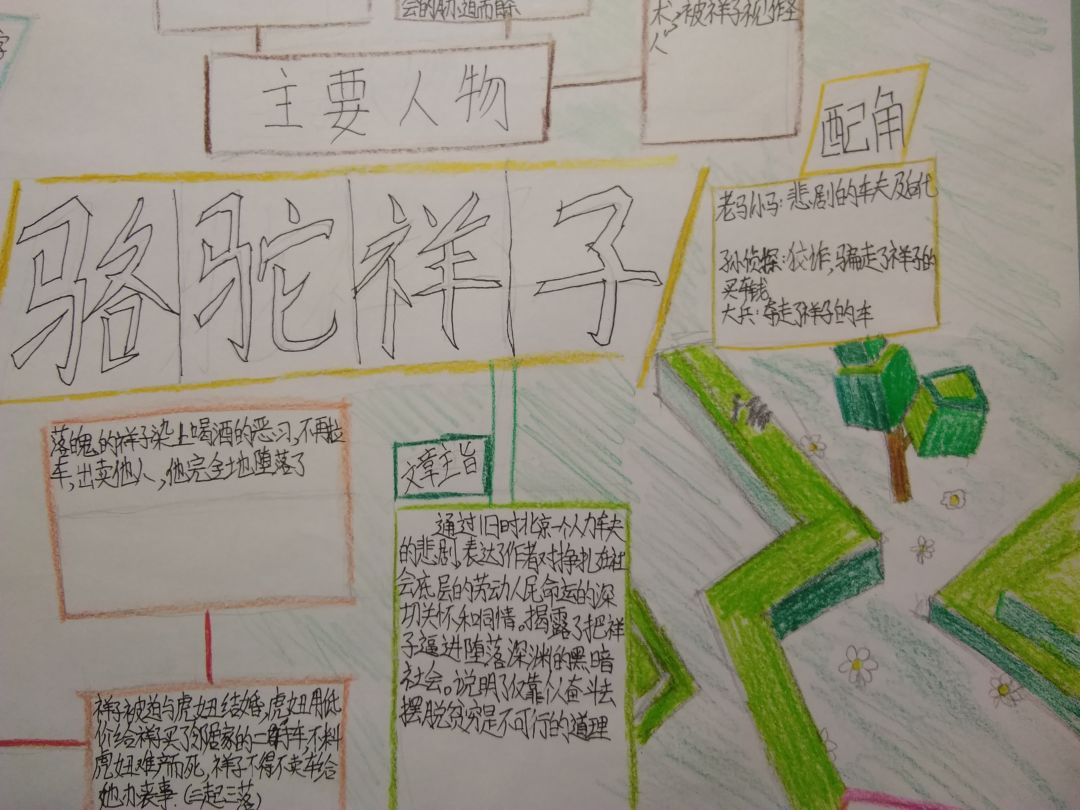 会的胁迫而
术，被祥子视作怪
人
主要人物
配角
骆驼祥子
老马小马：悲剧的车夫及后代
孙侦探：狡诈，骗走了祥子的
买车钱
大兵：牵走了祥子的车
落魄的祥子染上喝酒的恶习，不再拉
车，出卖他人，他完全地堕落了
文章主旨
通过旧时北京一个人力车夫
的悲剧，表达了作者对挣扎在社
会底层的劳动人民命运的深
切关怀和同情。揭露了把祥
子逼进堕落深渊的黑暗
社会。说明了仅靠个人奋斗去
摆脱贫穷是不可行的道理
祥子被迫与虎妞结婚，虎妞用低
价给祥子买了邻居家的二手车，不料
虎妞难产而死，祥子不得不卖车给
她办丧事．(三起三落)